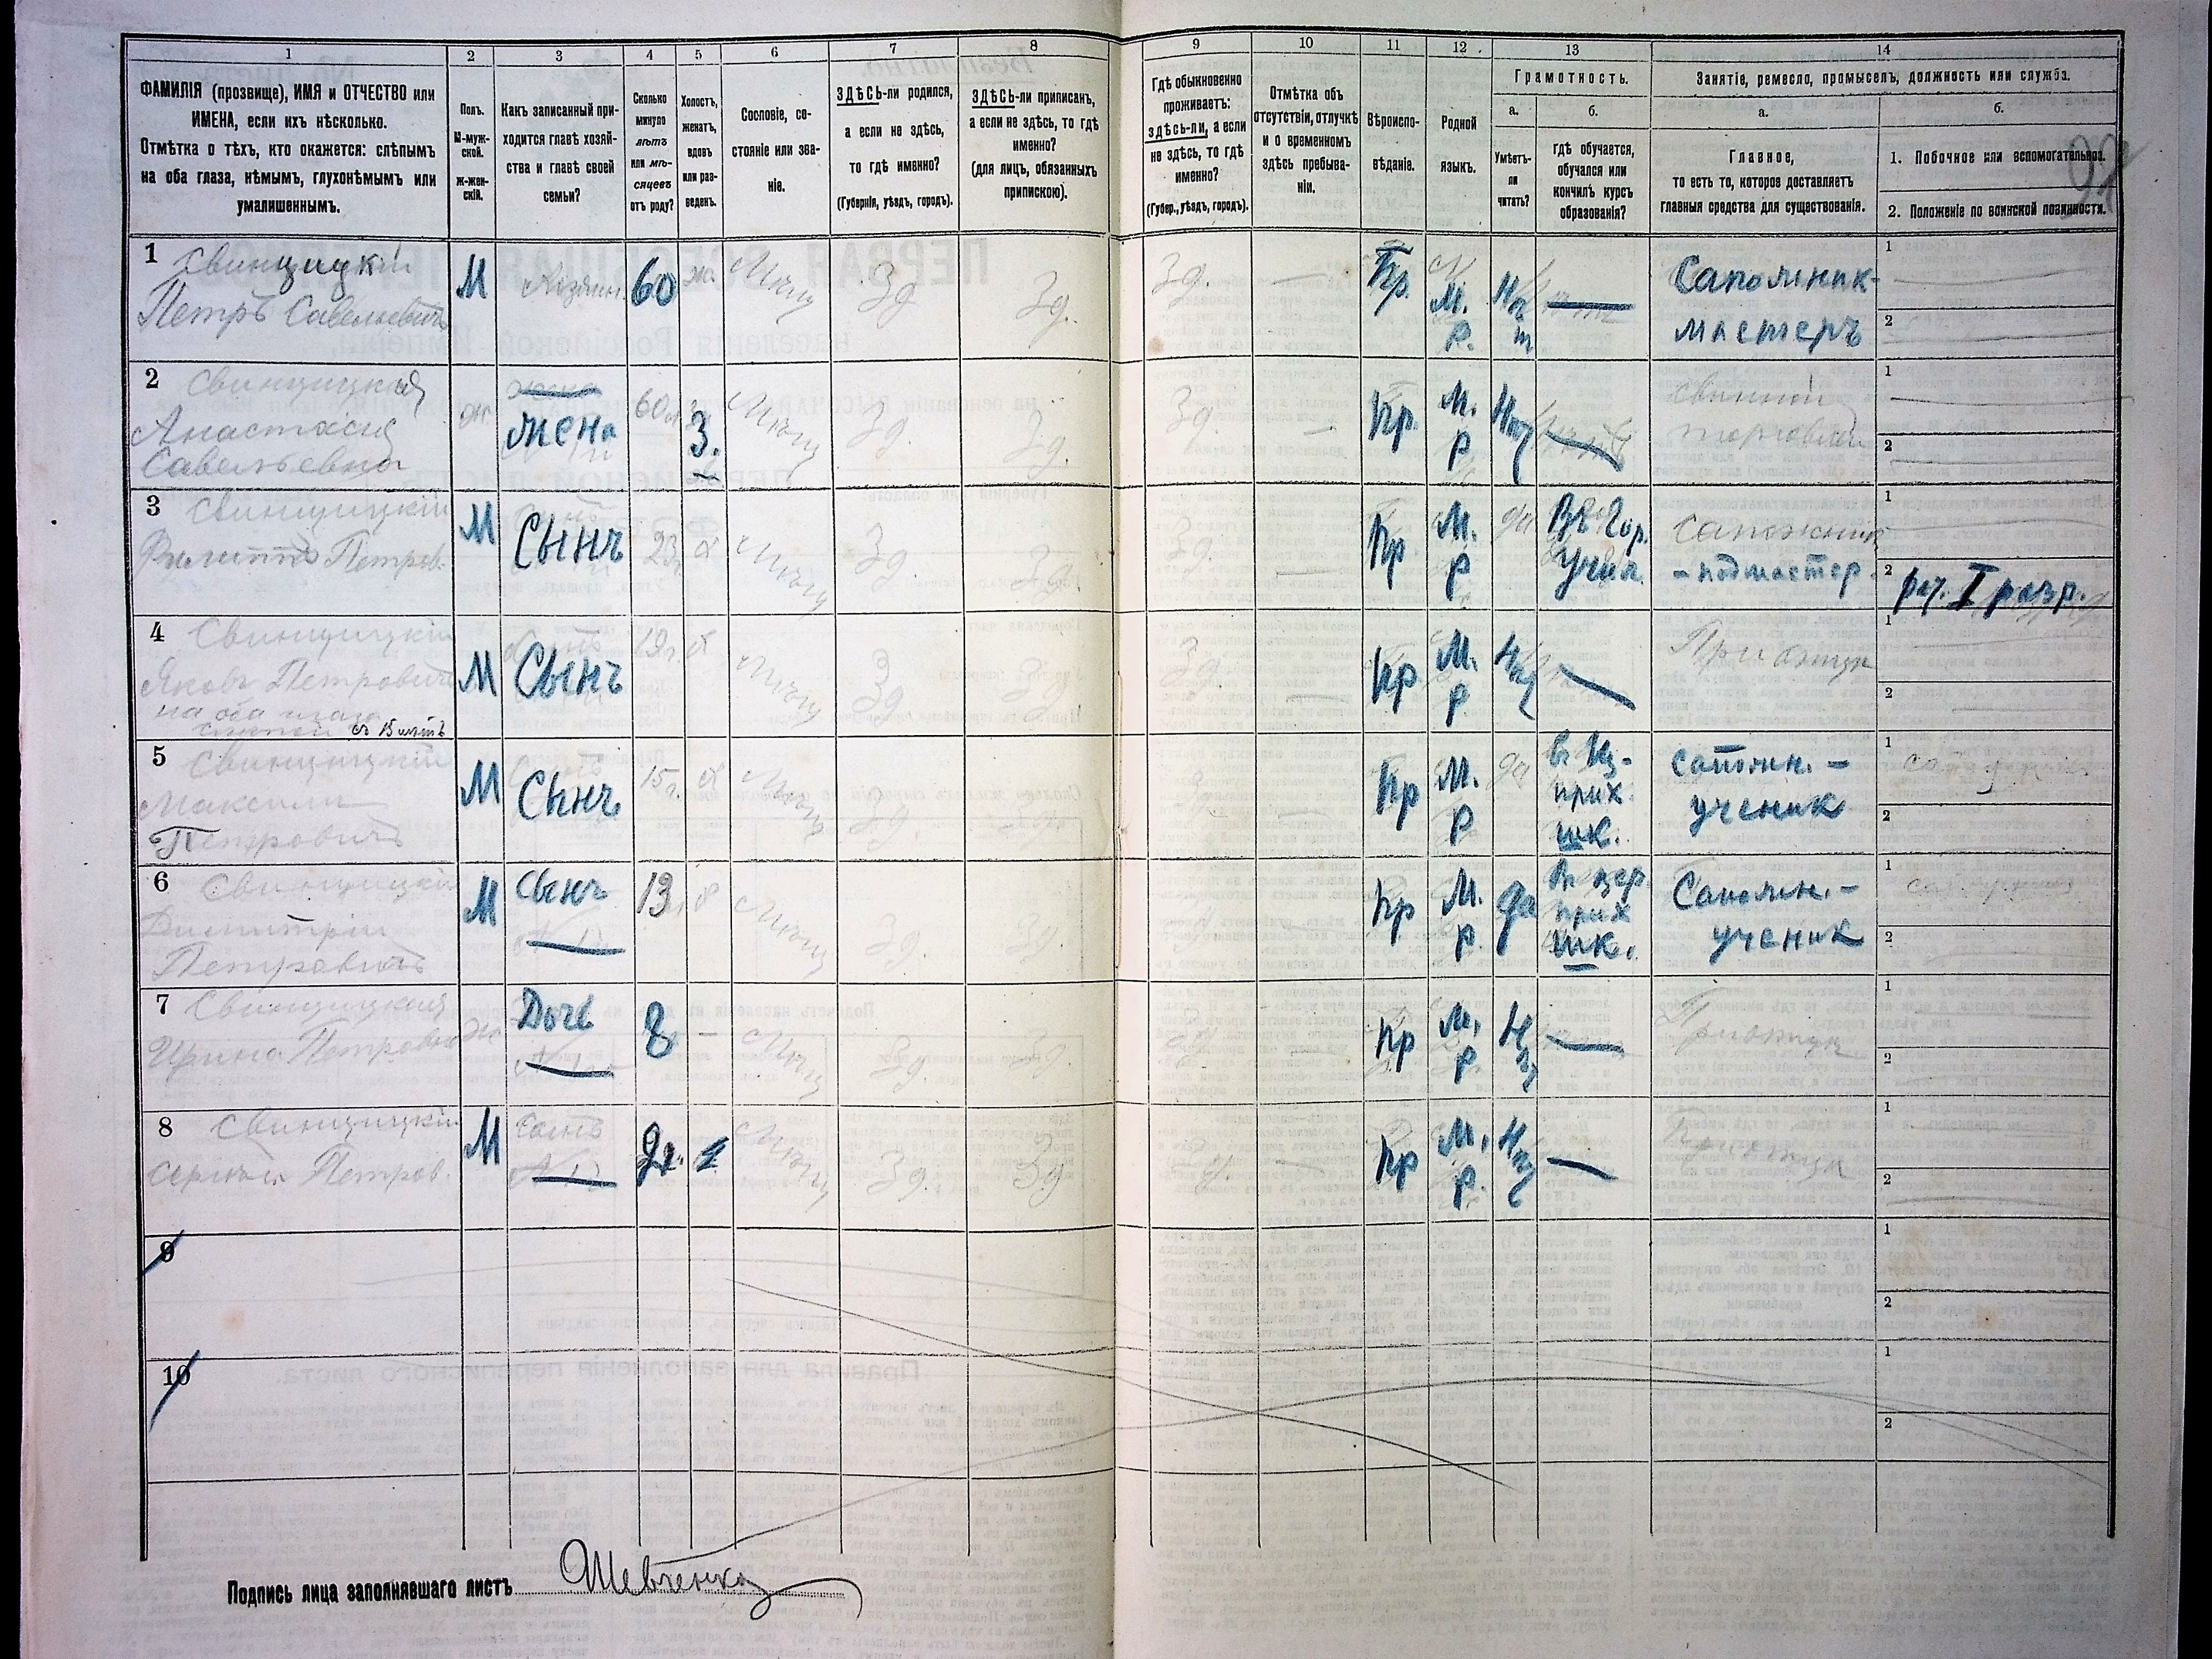 1
2
3
4
5
6
7
8
9
10
11
12
13
14
ФАМИЛІЯ (прозвище), ИМЯ и ОТЧЕСТВО или
ИМЕНА, если ихъ нѣсколько.
Отмѣтка о тѣхъ, кто окажется: слѣпымъ
на оба глаза, нѣмымъ, глухонѣмымъ или
умалишеннымъ.
Полъ.
М-муж-
ской.
Ж-жен-
скій.
Какъ записанный при-
ходится главѣ хозяй-
ства и главѣ своей
семьи?
Сколько
минуло
лѣтъ
или мѣ-
сяцевъ
отъ роду?
Холостъ,
женатъ,
вдовъ
или раз-
веденъ.
Сословіе, со-
стояніе или зва-
ніе.
ЗДѢСЬ-ли родился,
а если не здѣсь,
то гдѣ именно?
(Губернія, уѣздъ, городъ).
ЗДѢСЬ-ли приписанъ,
а если не здѣсь, то гдѣ
именно?
(для лицъ, обязанныхъ
припискою).
Гдѣ обыкновенно
проживаетъ:
здѣсь-ли, а если
не здѣсь, то гдѣ
именно?
(Губер., уѣздъ, городъ).
Отмѣтка объ
отсутствіи, отлучкѣ
и о временномъ
здѣсь пребыва-
ніи.
Вѣроиспо-
вѣданіе.
Родной
языкъ.
Грамотность.
а.
Умѣетъ-
ли
читать?
б.
гдѣ обучается,
обучался или
кончилъ курсъ
образованія?
Занятіе, ремесло, промыселъ, должность или служба.
а.
Главное,
то есть то, которое доставляетъ
главныя средства для существованія.
б.
1. Побочное или вспомогательное.
2. Положеніе по воинской повинности.
1 Свинцицкій
Петръ Савельевичъ
М
Хозяинъ
60
ж.
Мѣщ
Зд
Зд.
Зд.
—
Пр.
М.
р.
Нѣт
—
Сапожник-
мастеръ
1
2
2 Свинцицкая
Анастасія
Савельевна
ж
жена
60
З.
Мѣщ
Зд.
Зд.
Зд.
—
Пр.
М.
р
Нѣт
—
1
2
3 Свинцицкій
Филиппъ Петров.
М
Сынъ
23
х
Мѣщ
Зд.
Зд.
Зд.
—
Пр
М.
р
да
Въ Гор.
учил.
сапожник
- подмастер.
1
2 рат. I разр.
4 Свинцицкій
Яковъ Петровичъ
на оба глаза
слепой съ 15 лѣтъ
М
Сынъ
19 г.
х
Мѣщ
Зд
Зд.
Зд.
—
Пр
М.
р.
Нѣт
—
При отцѣ
1
2
5 Свинцицкій
Максимъ
Петровичъ
М
Сынъ
15 г.
х
Мѣщ
Зд
Зд.
—
Пр
М.
р
да
в Цр-
прих.
шк.
сапожн. -
ученик
1
2
6 Свинцицкій
Димитрій
Петровичъ
М
сынъ
13
х
Мѣщ
Зд.
Зд.
—
Пр
М.
р.
да
в цер.
прих
шк.
Сапожн. -
ученик
1
2
7 Свинцицкая
Ирина Петровна
ж
Дочь
8
—
Мѣщ
Зд.
Зд.
—
Пр
М.
р.
Нѣт
—
При отцѣ
1
2
8 Свинцицкій
Сергѣй Петров.
М
Сынъ
Мѣщ
Зд.
Зд
—
Пр
М.
р.
Нѣт
—
При отцѣ
1
2
9
1
2
10
1
2
Подпись лица заполнявшаго листъ Шевченко